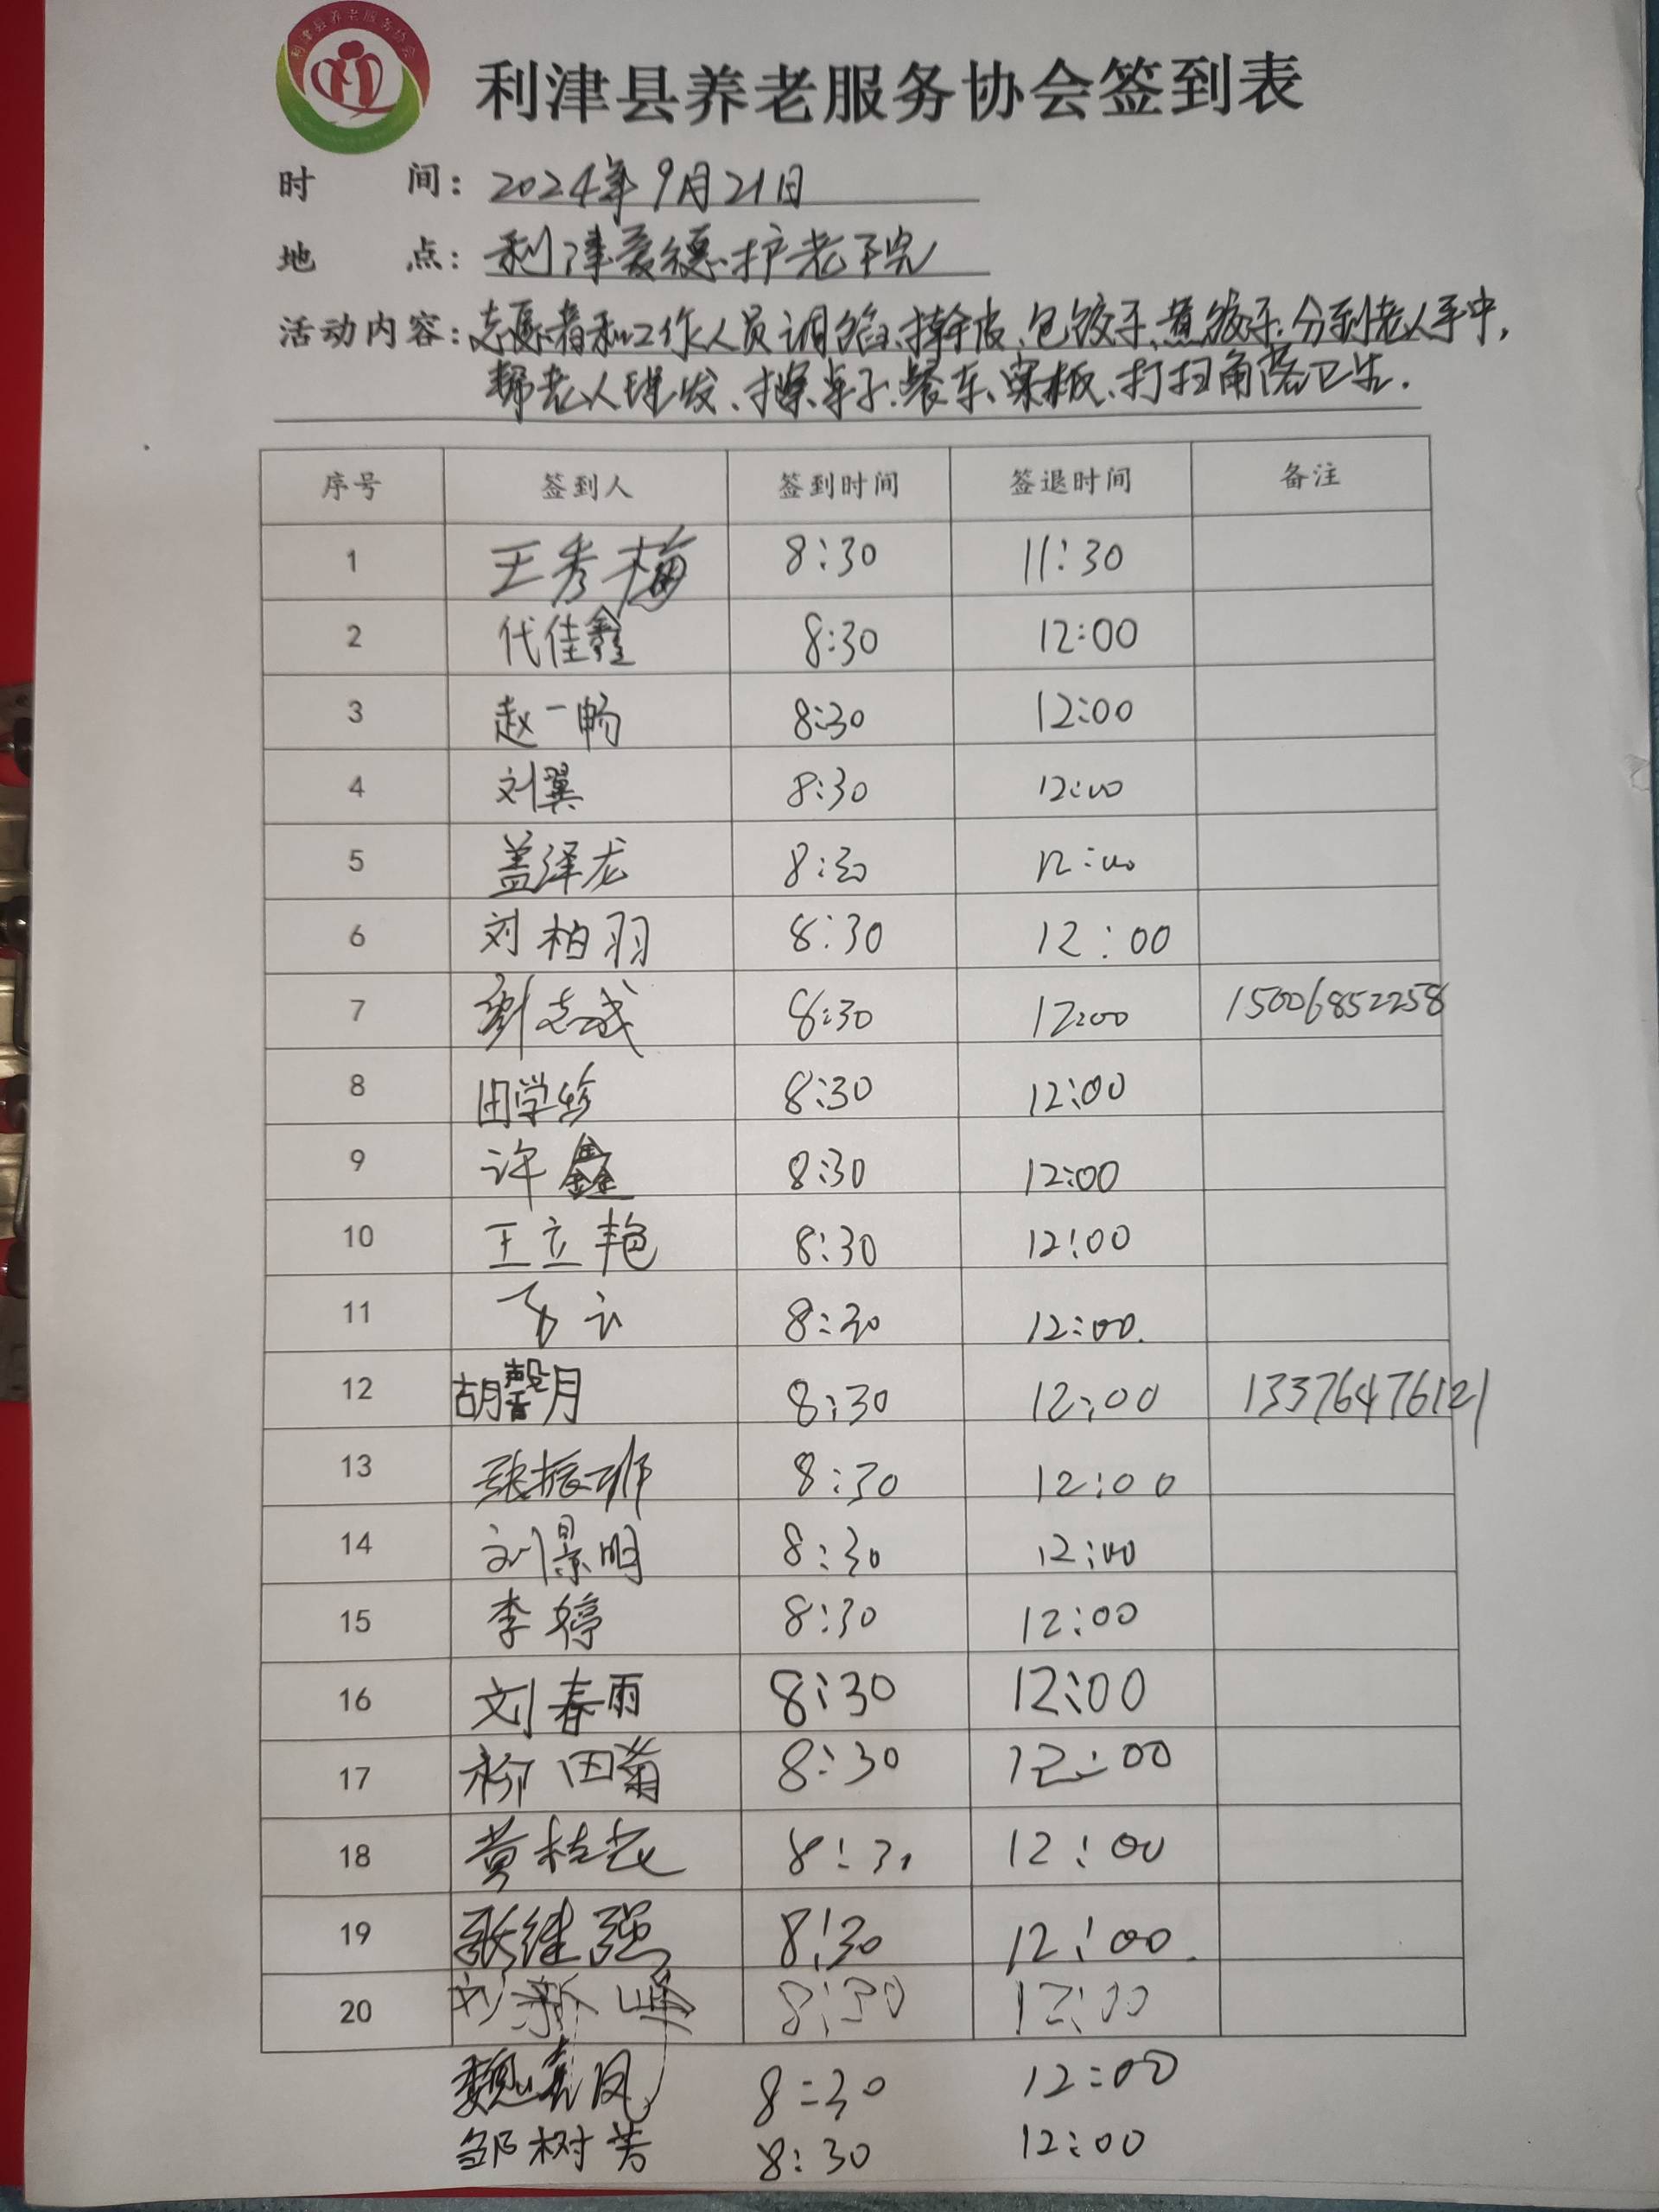 利津县养老服务协会
利津县养老服务协会签到表
时 间：2024年9月21日
地 点：利津爱德护老院
活动内容：志愿者和工作人员调馅、擀皮、包饺子、煮饺子、分到老人手中，
帮老人理发、擦桌子、餐车、案板、打扫角落卫生.
序号 签到人 签到时间 签退时间 备注
1 王秀梅 8:30 11:30
2 代佳鑫 8:30 12:00
3 赵一畅 8:30 12:00
4 刘翼 8:30 12:00
5 盖泽龙 8:30 12:00
6 刘柏羽 8:30 12:00
7 刘志成 8:30 12:00 15006852258
8 田学珍 8:30 12:00
9 许鑫 8:30 12:00
10 王立艳 8:30 12:00
11 8:30 12:00.
12 胡馨月 8:30 12:00 13376476121
13 张振 8:30 12:00
14 刘景明 8:30 12:00
15 李婷 8:30 12:00
16 刘春雨 8:30 12:00
17 柳田菊 8:30 12:00
18 黄桂花 8:30 12:00
19 张继强 8:30 12:00.
20 刘新峰 8:30 12:00
魏春凤 8:30 12:00
邹树芳 8:30 12:00